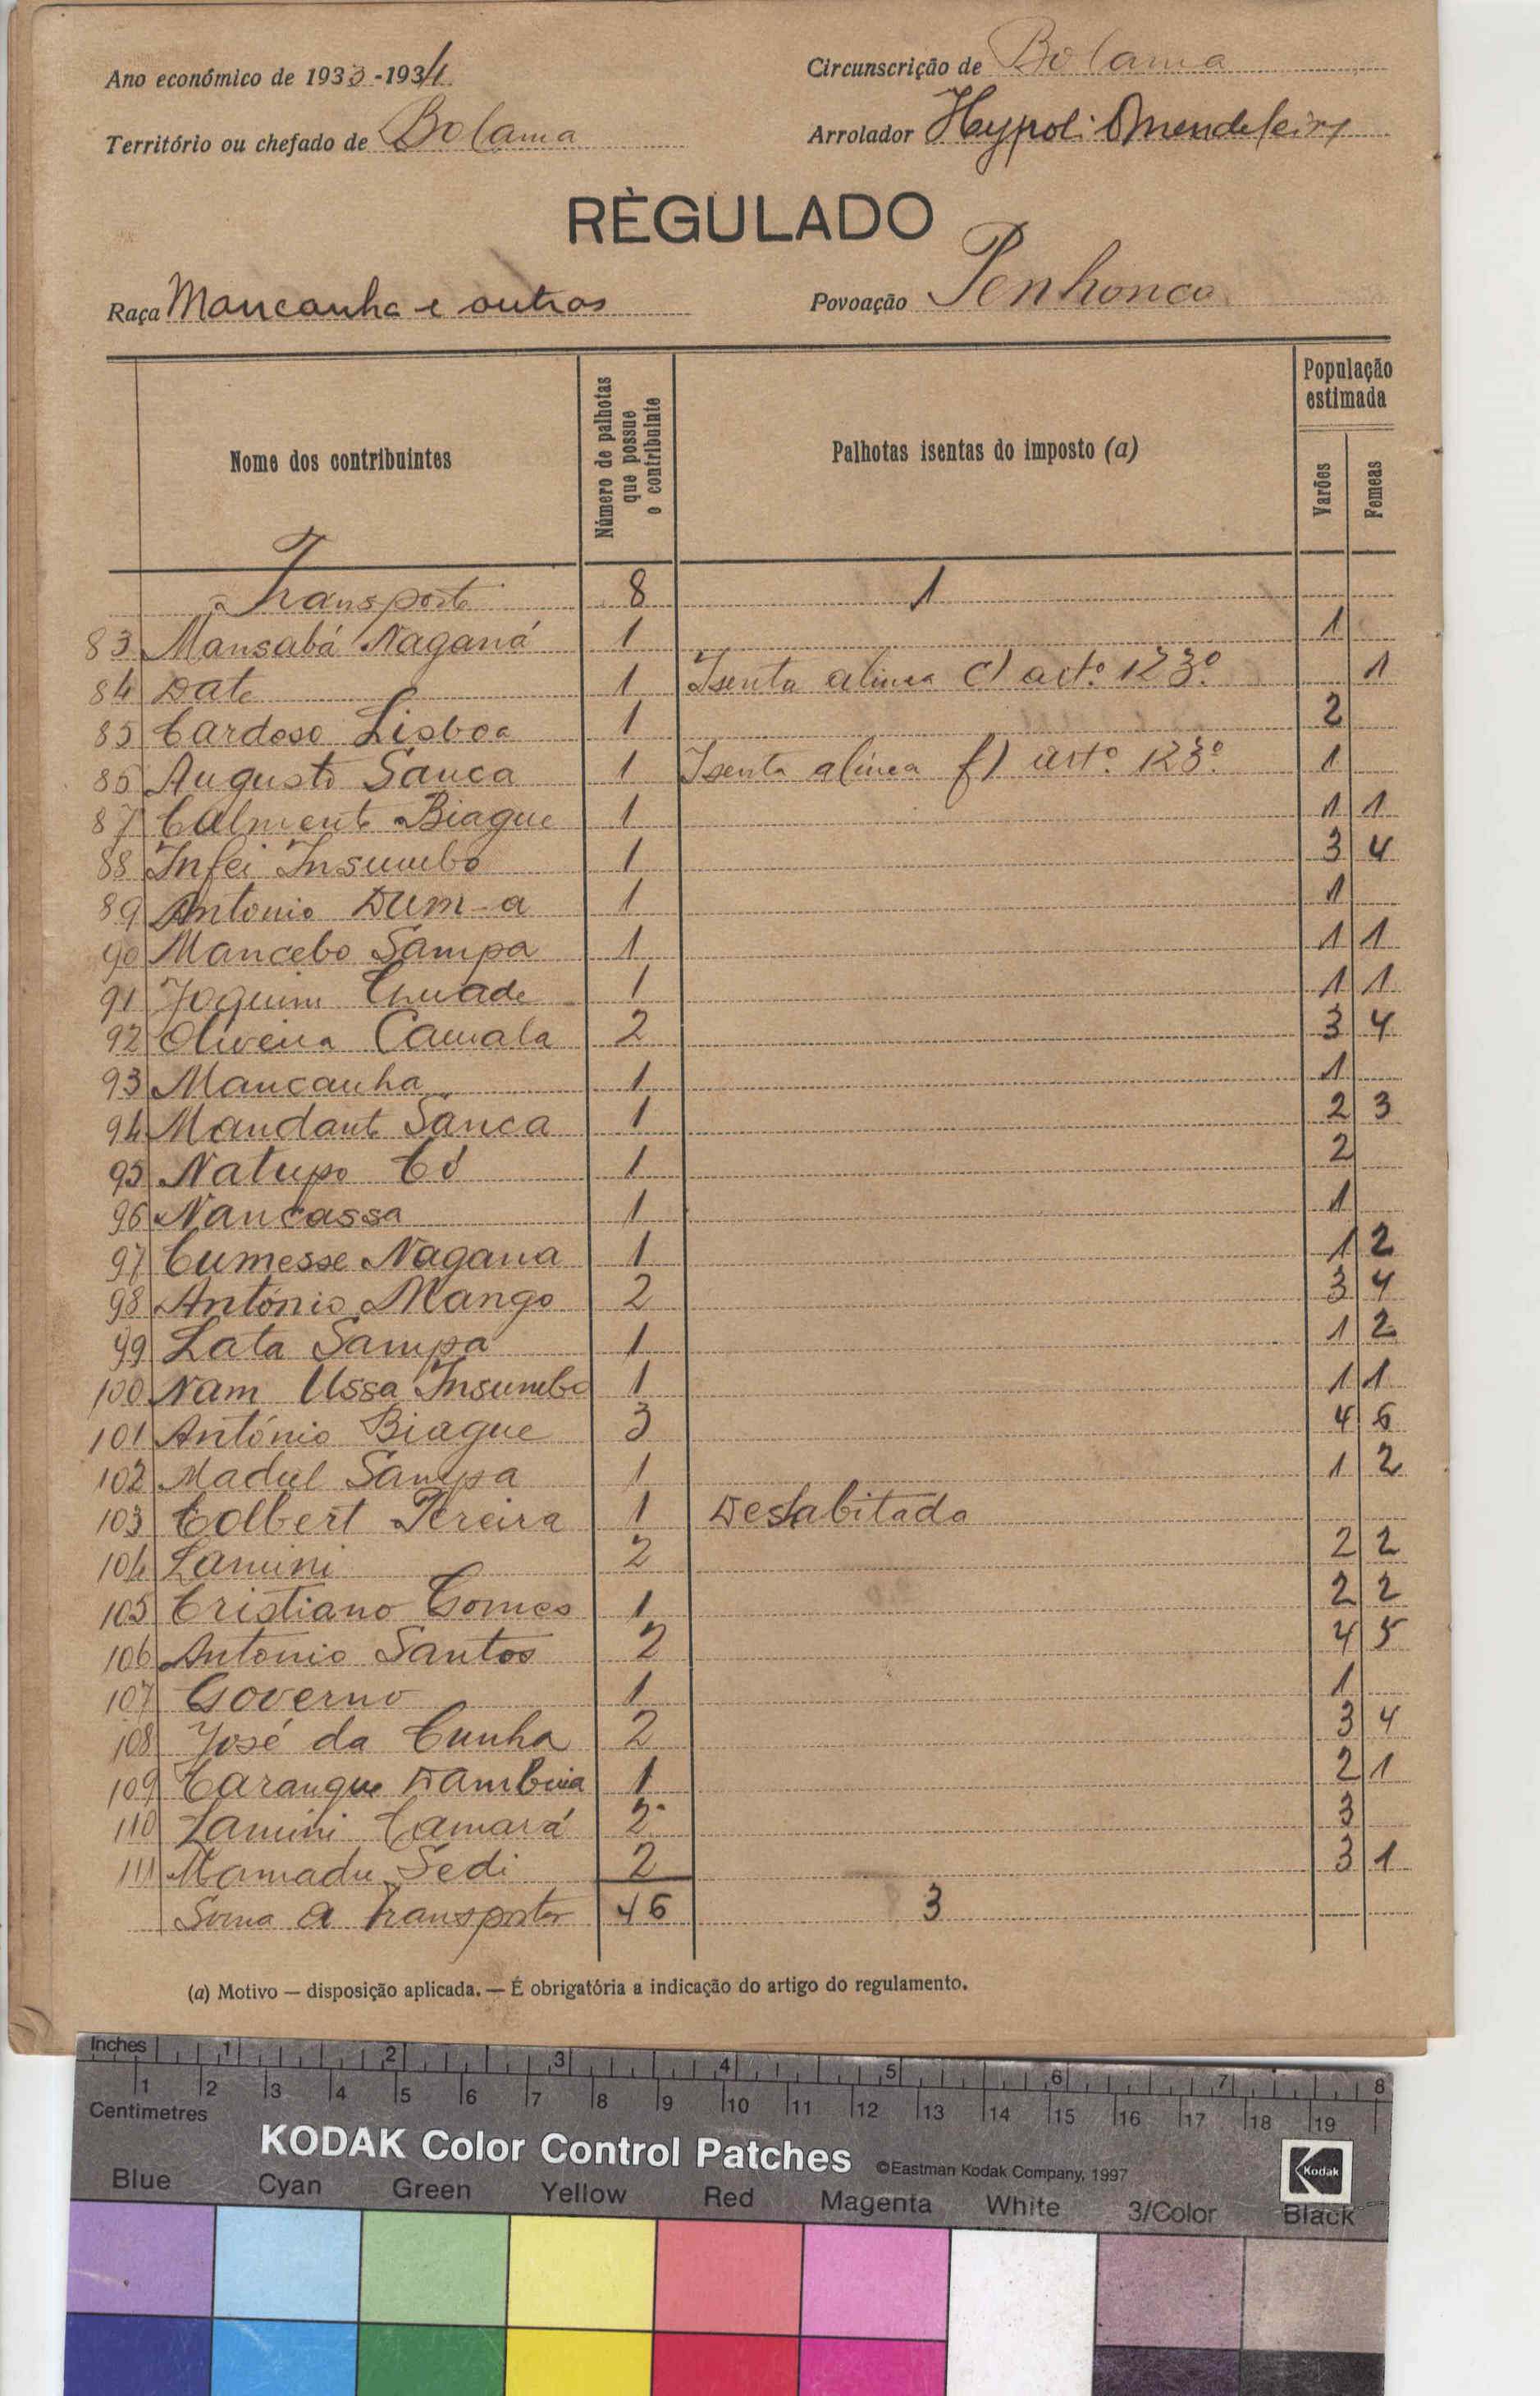 Ano económico de 1933-1934
Circunscrição de Bolama
Território ou chefado de Bolama
Arrolador
RÈGULADO
Raça Mancanha e outros
Povoação Penhonco
Nome dos contribuintes
Número de palhotas que possue o contribuinte
Palhotas isentas do imposto (a)
População estimada
Varões
Femeas
Transporte 8 1
83 Mansabá Naganá 1 1
84 Date 1 Isenta alinea c) artº 123º 1
85 Cardoso Lisboa 1 2
86 Augusto Sanca 1 Isenta alínea f) artº 123º 1
87 Calmente Biague 1 1 1
88 Infei Insumbo 1 3 4
89 Antonio Dum-a 1 1
90 Mancebo Sampa 1 1 1
91 Joquim 1 1 1
92 Oliveira Camala 2 3 4
93 Mancanha 1 1
94 Mandante Sanca 1 2 3
95 Natupo Có 1 2
96 Nancassa 1 1
97 Cumesse Nagana 1 1 2
98 António Mango 2 3 4
99 Lata Sampa 1 1 2
100 Nam Ussa Insumbo 1 1 1
101 António Biague 3 4 6
102 Madul Sampa 1 1 2
103 Colbert Pereira 1 Deshabitada
104 Lamini 2 2 2
105 Cristiano Gomes 1 2 2
106 Antonio Santos 2 4 5
107 Governo 1 1
108 José da Cunha 2 3 4
109 Carangue 1 2 1
110 Lamini Camará 2 3
111 Mamadu Sedi 2 3 1
Soma a transportar 46 3
(a) Motivo — disposição aplicada. — É obrigatória a indicação do artigo do regulamento.
Inches 1 2 3 4 5 6 7 8
1 2 3 4 5 6 7 8 9 10 11 12 13 14 15 16 17 18 19
Centimetres
KODAK Color Control Patches ©Eastman Kodak Company, 1997 Kodak
Blue Cyan Green Yellow Red Magenta White 3/Color Black